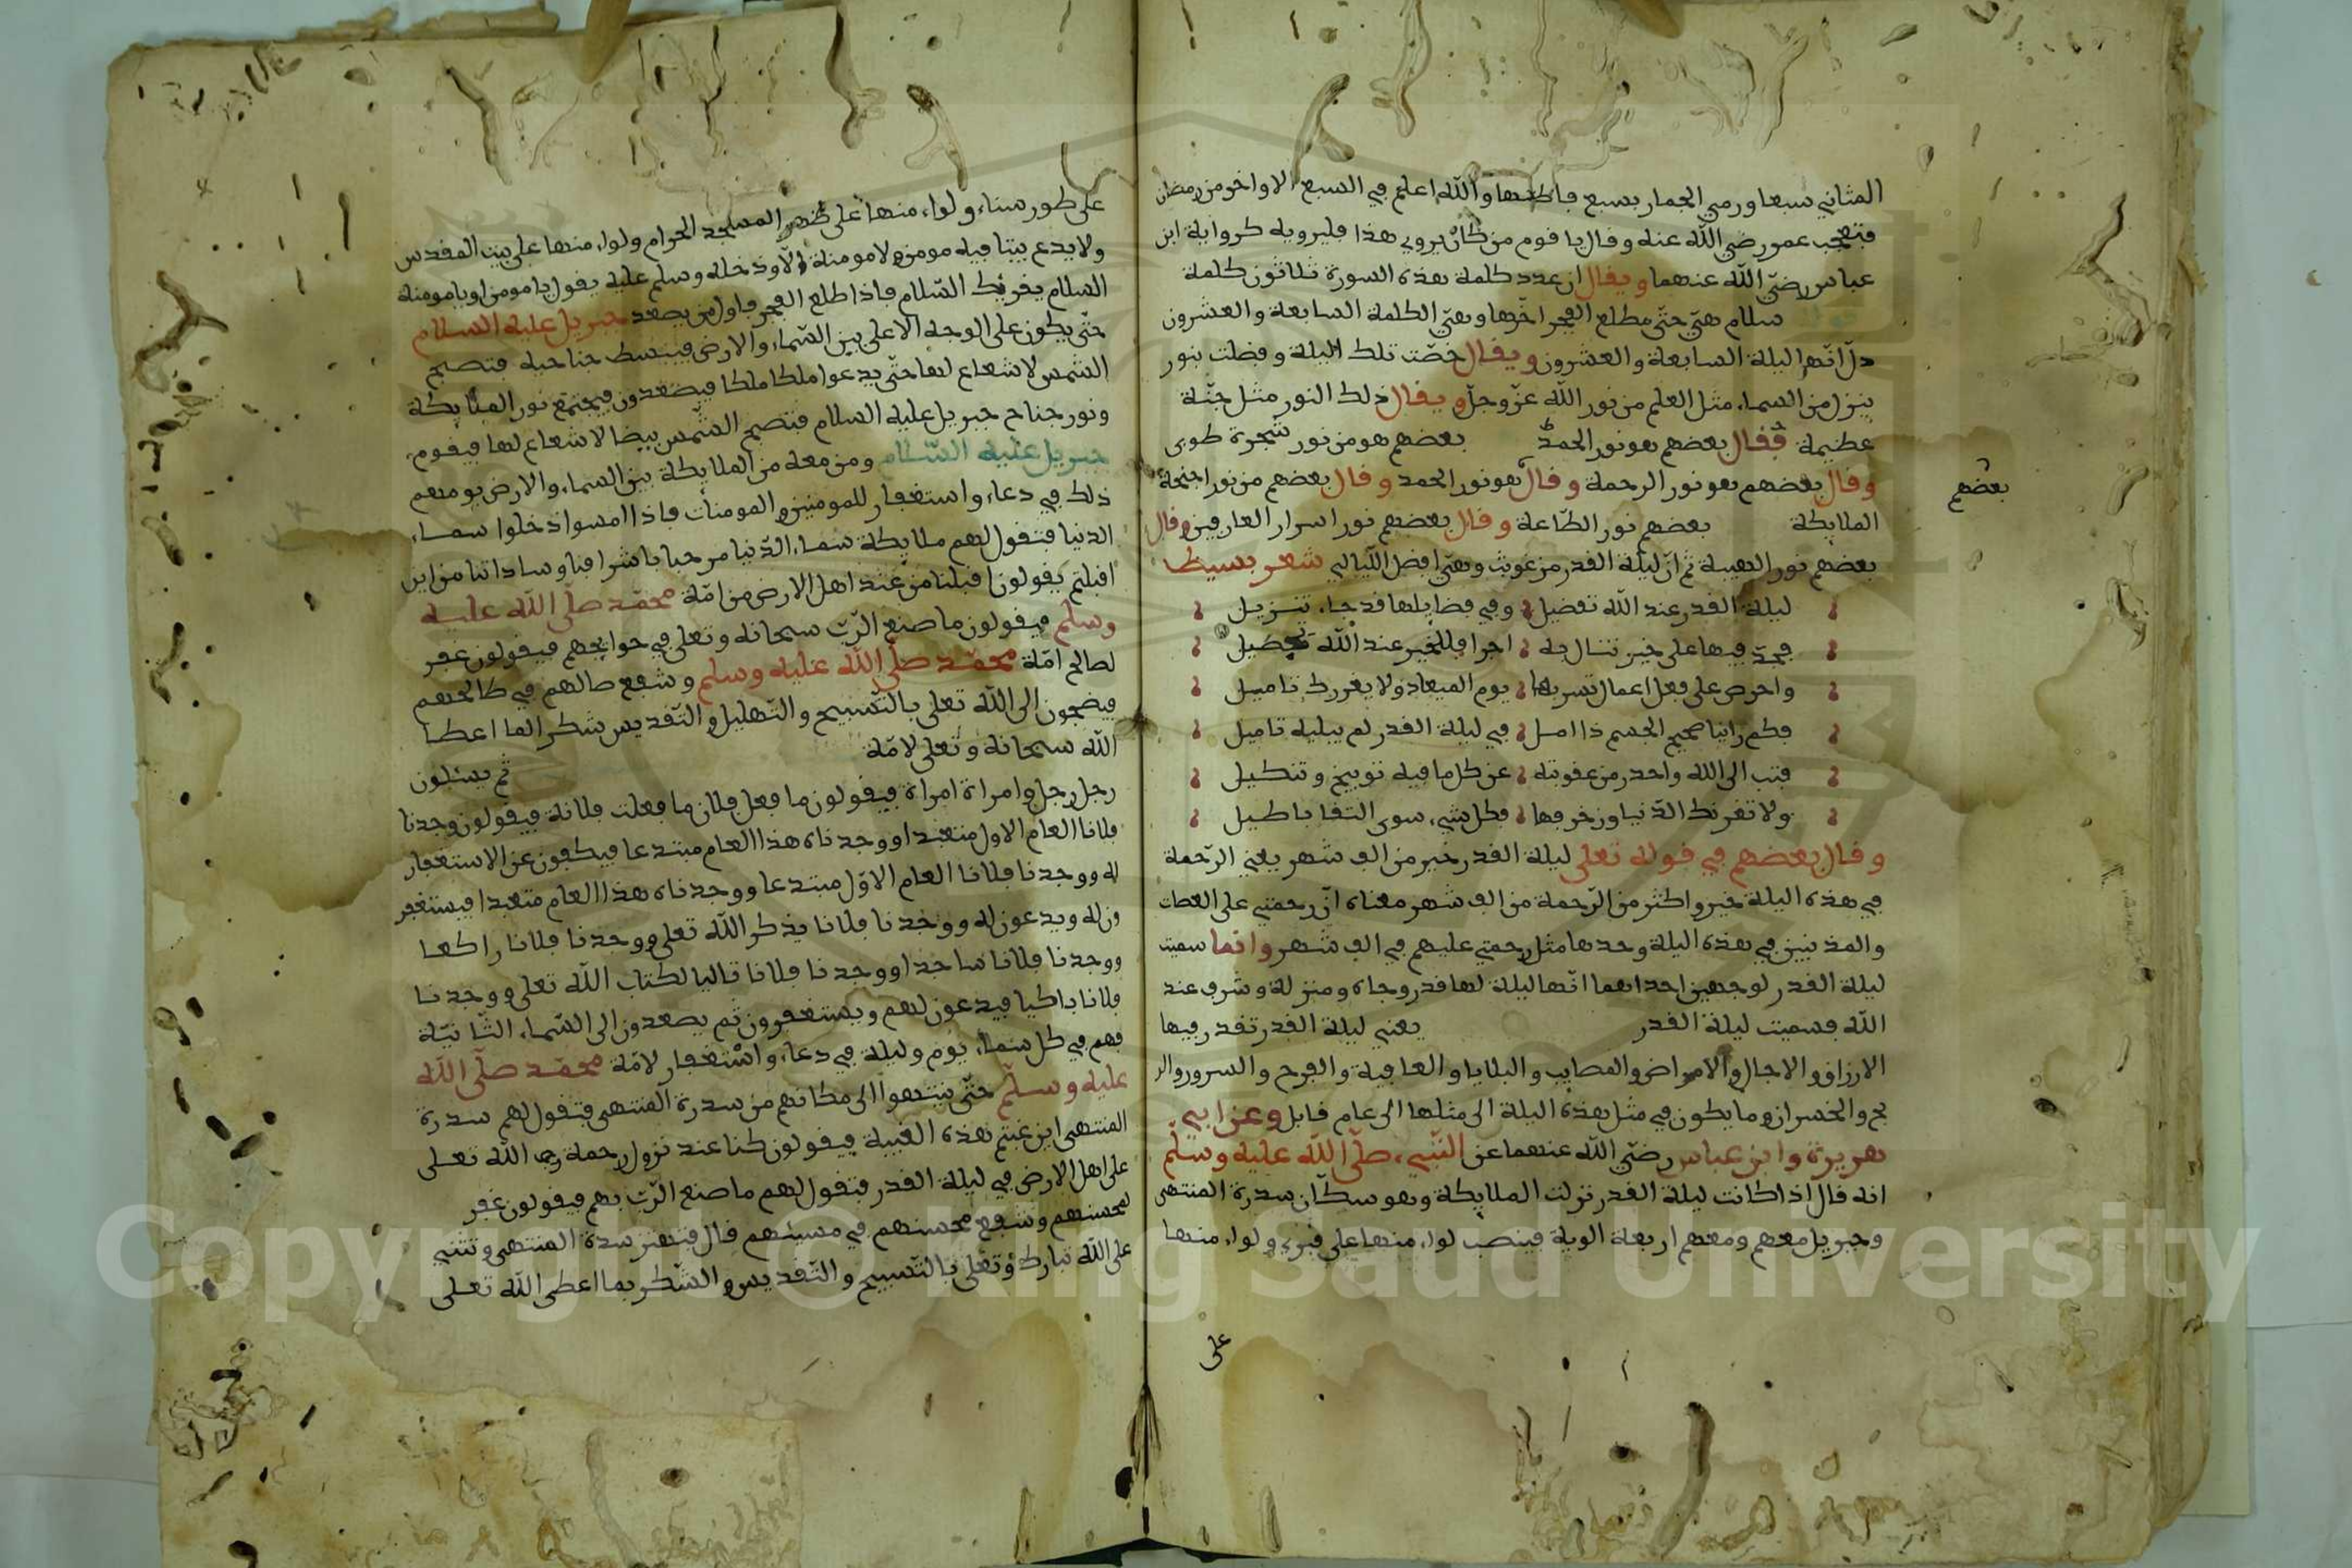 المثاني سبعا ورمي الجمار بسبع فاطلبها والله اعلم في السبع الاواخر من رمضان
فتعجب عمر رضي الله عنه وقال يا قوم من كان يروي هذا فليرويه كرواية ابن
عباس رضي الله عنهما ويقال ان عدد كلمة هذه السورة ثلاثون كلمة
سلام هي حتى مطلع الفجر اخرها وهي الكلمة السابعة والعشرون
دل انها ليلة السابعة والعشرون ويقال خصّت تلك اليلة وفضلت بنور
ينزل من السماء مثل العلم من نور الله عزّ وجلّ ويقال ذلك النور مثل جنّة
عظيمة فقال بعضهم هو نور الحمد بعضهم هو من نور شجرة طوبى
وقال بعضهم هو نور الرحمة وقال هو نور الحمد وقال بعضهم من نور اجنحة
بعضهم
الملايكة بعضهم نور الطاعة وقال بعضهم نور اسرار العارفين وقال
بعضهم نور الهيبة ثم ان ليلة القدر مرغوبة وهي افضل الليالي شعر بسيط
ليلة القدر عند الله تفضيل وفي فضايلها قد جاء تنزيل
فجدّ فيها على خير تنال به اجرا فللخير عند الله تحصيل
واحرص على فعل اعمال تسر بها يوم الميعاد ولا يغررك تاميل
فكم راينا صحيح الجسم ذا امل في ليلة القدر لم يبليه تاميل
فتب الى الله واحذر من عقوبته عن كل ما فيه توبيخ وتنكيل
ولا تغرنك الدّنيا وزخرفها فكل شيء سوى التقا باطيل
وقال بعضهم في قوله تعلى ليلة القدر خير من الف شهر يعني الرّحمة
في هذه اليلة خير واكثر من الرّحمة من الف شهر معناه انّ رحمتي على العصات
والمذنبين في هذه اليلة وحدها مثل رحمتي عليهم في الف شهر وانما سميت
ليلة القدر لوجهين احداهما انّها ليلة لها قدر وجاه ومنزلة وشرف عند
الله فسميت ليلة القدر يعني ليلة القدر تقدر فيها
الارزاق والاجال والامراض والمصايب والبلايا والعافية والفرح والسرور والر
بح والخسران وما يكون في مثل هذه اليلة الى مثلها الى عام قابل وعن ابي
هريرة وابن عباس رضي الله عنهما عن النّبيء صلّى الله عليه وسلّم
انه قال اذا كانت ليلة القدر نزلت الملايكة وهو سكّان سدرة المنتهى
وجبريل معهم ومعهم اربعة الوية فينصب لواء منها على قبري ولواء منها
على
على طور سيناء ولواء منها على ظهر المسجد الحرام ولواء منها على بيت المقدس
ولا يدع بيتا فيه مومن ولا مومنة الا ودخله وسلم عليه يقول يا مومن او يا مومنة
السلام يقريك السّلام فاذا طلع الفجر فاول من يصعد جبريل عليه السلام
حتّى يكون على الوجه الاعلى بين السّماء والارض فيبسط جناحيه فتصبح
الشّمس لا شعاع لها حتّى يدعوا ملكا ملكا فيصعدون فيجتمع نور الملايكة
ونور جناح جبريل عليه السلام فتصبح الشّمس بيضا لا شعاع لها فيقوم
جبريل عليه السّلام ومن معه من الملايكة بين السماء والارض يومهم
ذلك في دعاء واستغفار للمومنين والمومنات فاذا امسوا دخلوا سماء
الدنيا فتقول لهم ملايكة سماء الدّنيا مرحبا باشرافنا وساداتنا من اين
اقبلتم يقولون اقبلنا من عند اهل الارض من امّة محمّد صلّى الله عليه
وسلّم فيقولون ما صنع الرّب سبحانه وتعلى في حوايجهم فيقولون غفر
لصالح امّة محمّد صلّى الله عليه وسلّم وشفع صالهم في طالحهم
فيضجون الى الله تعلى بالتّسبيح والتّهليل والتّقديس شكرا لما اعطا
الله سبحانه وتعلى لامّة
ثم يسئلون
رجل رجل وامراة امراة فيقولون ما فعل فلان ما فعلت فلانة فيقولون وجدنا
فلانا العام الاول متعبدا ووجدناه هذا العام مبتدعا فيكفون عن الاستغفار
له ووجدنا فلانا العام الاوّل مبتدعا ووجدناه هذا العام متعبدا فيستغفر
ون له ويدعون له ووجدنا فلانا يذكر الله تعلى ووجدنا فلانا راكعا
ووجدنا فلانا ساجدا ووجدنا فلانا تاليا لكتاب الله تعلى ووجدنا
فلانا باكيا فيدعون لهم ويستغفرون ثم يصعدون الى السّماء الثّانيّة
فهم في كل سماء يوم وليلة في دعاء واستغفار لامّة محمّد صلّى الله
عليه وسلّم حتّى ينتهوا الى مكانهم من سدرة المنتهى فتقول لهم سدرة
المنتهى اين غبتم هذه الغيبة فيقولون كنا عند نزول رحمة الله تعلى
على اهل الارض في ليلة القدر فتقول لهم ما صنع الرّب بهم فيقولون غفر
لمحسنهم وشفع محسنهم في مسيئهم قال فتهتز سدة المنتهى وتثني
على الله تبارك وتعلى بالتّسبيح والتّقديس والشّكر بما اعطى الله تعلى
Copyright © King Saud University